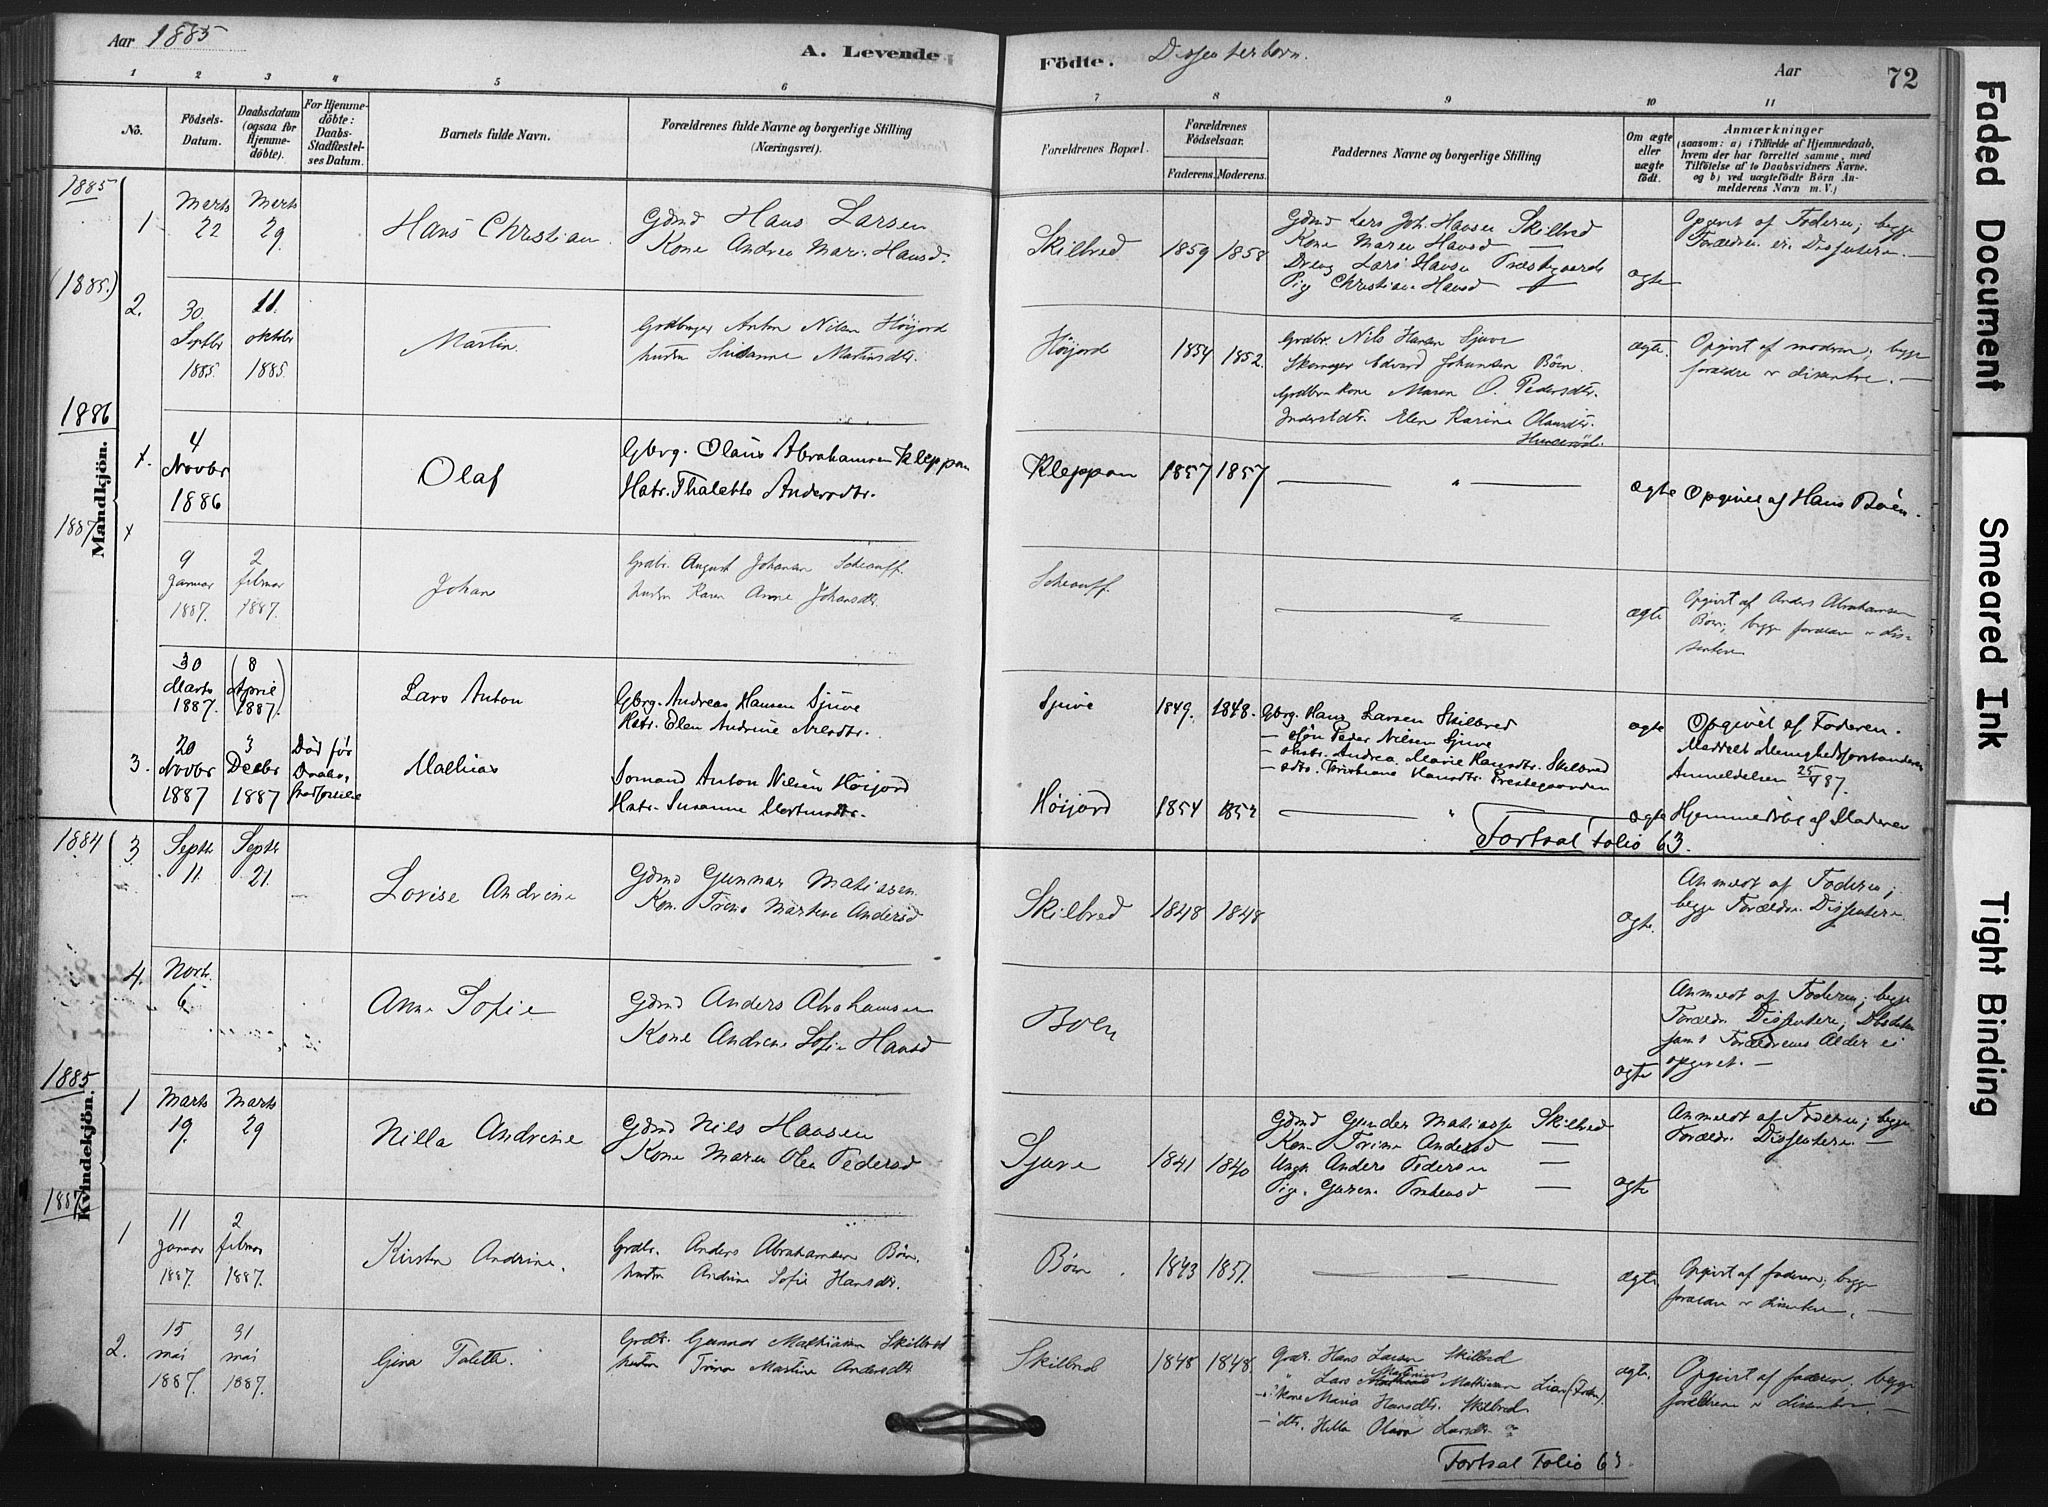 Aar 1885
A. Levende
Fødte.
Dissenterbørn.
Aar
72
1 2 3 4 5 6 7 8 9 10 11
No.
Fødsels-
Datum.
Daabsdatum
(ogsaa for
Hjemme-
døbte).
For Hjemme-
døbte:
Daabs-
Stadfæstel-
ses Datum.
Barnets fulde Navn.
Forældrenes fulde Navne og borgerlige Stilling
(Næringsvei).
Forældrenes Bopæl.
Forældrenes
Fødselsaar.
Faderens. Moderens.
Faddernes Navne og borgerlige Stilling
Om ægte
eller
uægte
født.
Anmærkninger
(saasom: a) i Tilfælde af Hjemmedaab,
hvem der har forrettet samme, med
Tilføielse af to Daabsvidners Navne.
og b) ved uægtefødte Børn An-
melderens Navn m. V.)
Mandkjøn.
1885
1
Marts
22
Marts
29
Hans Christian
Gdmd Hans Larsen
Kone Andrea Mar. Hansd.
Skilbred
1859 1858
Gdmd Lars Joh. Hansen Skilbred
Kone Maren Hansd —
Dreng Lars Hansen Præstegaarde
Pig Christian Hansd —
ægte
Opgivet af Faderen; begge
Forældre er Dissentere. —
(1885.)
2.
30
Septbr
1885.
11.
oktober
1885.
Martin
Grdbruger Anton Nilsen Höijord
hustru Susanne Martinsdtr.
Höijord
1854 1852.
Grdbr. Nils Hansen Sjuve
Skomager Edvard Johansen Bøen
Grdbr. kone Maren O. Pedersdtr.
Inderstdtr. Elen Karine Olausdtr.
ægte.
Opgivet af moderen; begge
forældre er dissentere. —
1886
4
Novbr
1886
Olaf
Gbrg. Olaus Abrahamsen Kleppan
Hstr. Thalette Andersdtr.
Kleppan
1857 1857
— " —
ægte
Opgivet af Hans Bøen.
1887
9
januar
1887.
2
februar
1887.
Johan
Grdbr. August Johansen
hustru Karen Anne Johansdtr.
— " —
ægte
Opgivet af Anders Abrahamsen
Bøen; begge forældre er dis-
sentere
30
Marts
1887.
(8
April
1887.)
Lars Anton
Gbrg. Andreas Hansen Sjuve
Hstr. Elen Andrine Nilsdtr.
Sjuve
1849. 1848.
Gbrg. Hans Larsen Skilbred
— søn Peder Nilsen Sjuve
— hstr. Andrea Marie Hansdtr. Skilbred
— dtr. Kristiane Hansdtr. Prestegaarden
ægte
Opgivet af Faderen.
Meddelt Menighedsforstanderen
Anmeldelsen 25/ 87.
3.
20
Novbr
1887
3
Decbr
1887
Død før
Daabs-
Mathias
Somand Anton Nilsen Höijord
Hstr. Susanne Martinsdtr.
Höijord
1854 1852
— " —
ægte
Hjemmedøbt af Moderen
Fortsat Folio 63.
Kvindekjøn.
1884
3
Septbr
11.
Septbr
21.
Lovise Andrine
Gdmd Gunnar Matiasen
Kon. Trine Martine Andersd
Skilbred
1848 1848
ægte.
Anmeldt af Faderen;
begge Forældre Dissentere.
4.
Novbr.
6
Anne Sofie
Gdmd Anders Abrahamsen
Kone Andrine Sofie Hansd
Boen
ægte
Anmeldt af Faderen; begge
Forældre Dissentere; Daabsdatum
samt Forældrenes Alder ei
opgivet. —
1885
1
Marts
19.
Marts
29
Nilla Andrine
Gdmd Nils Hansen
Kone Maren Olea Pedersd
Sjuve
1841 1840
Gdmd Gunder Matiass Skilbred
Kon. Trine Andersd —
Ungk. Anders Pedersen —
Pig. —
ægte
Anmeldt af Faderen; begge
Forældre Dissentere. —
1887
1
11
januar
1887.
2
februar
1887.
Kirsten Andrine.
Grdbr. Anders Abrahamsen Bøen.
hustru Andrine Sofie Hansdtr.
Bøen.
1843 1851.
— " —
ægte
Opgivet af faderen; begge
forældre er dissentere. —
2.
15
mai
1887.
31
mai
1887.
Gina Talette.
Grdbr. Gunnar Mathiasen Skilbred
hustru Trine Martine Andersdtr
Skilbred
1848 1848.
Grdbr. Hans Larsen Skilbred
" Lars Martinius Mathisen Lian
— kone Maria Hansdtr. Skilbred
— dtr. Hilla Olava Larsdtr.
ægte.
Opgivet af faderen; begge
forældrene er dissentere. —
Fortsat Folio 63.
Faded Document
Smeared Ink
Tight Binding